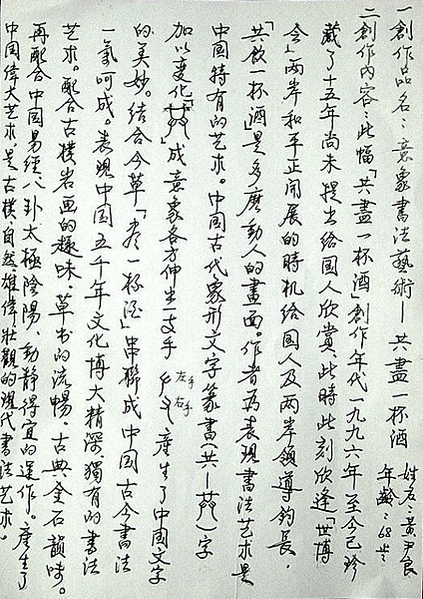 一創作品名：意象書法藝術—共盡一杯酒
姓名：黃尹良
年齡：68岁
二創作内容：此幅「共盡一杯酒」創作年代一九九六年至今已珍
藏了十五年尚未提出給國人欣賞，此時此刻欣逢「世博
会」两岸和平正開展的時机給国人及两岸領導鈞長，
「共飲一杯酒」是多麼動人的畫面。作者為表現書法艺术是
中國特有的艺术。中國古代象形文字篆書（共—）字
加以變化成意象各方伸出一支手
左手
右手
產生了中國文字
的美妙。结合今草「尽一杯酒」串聯成中国古今書法
一氣呵成。表現中国五千年文化博大精深，獨有的書法
艺术。配合古樸岩画的趣味。草书的流暢。古典金石韻味。
再配合中国易經八卦太極陰陽，動静得宜的運作。產生了
中國偉大艺术。是古樸、自然、雄偉、壯觀的現代書法艺术。